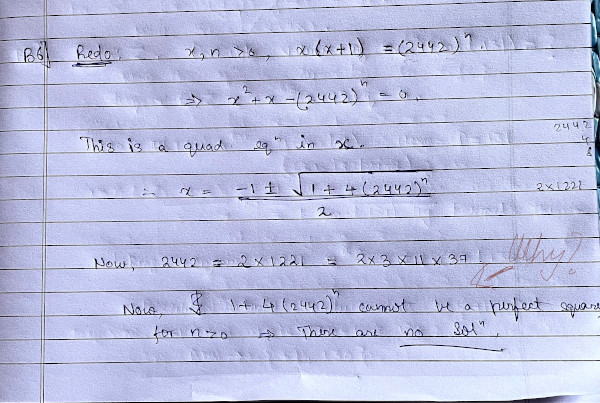 B6) Redo: x, n > 0, x(x+1) = (2442)^n.
⇒ x² + x − (2442)^n = 0.
This is a quad eqⁿ in x.
2442
4
8
∴ x = (−1 ± √(1 + 4(2442)^n)) / 2
2×1221
Now, 2442 = 2 × 1221 = 2×3×11×37
Why?
Now, 1 + 4(2442)^n cannot be a perfect square
for n>0 ⇒ There are no Solⁿ.